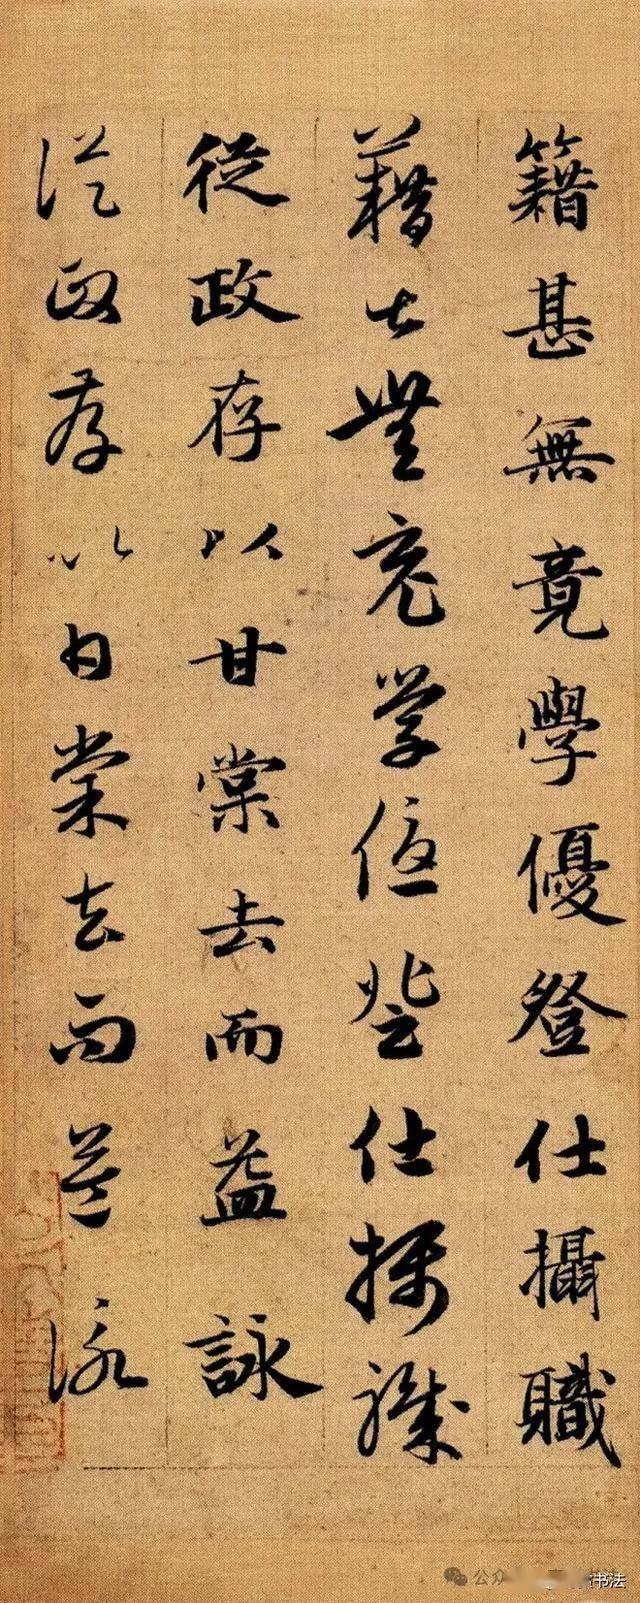 籍甚無竟學優登仕攝職
藉甚無竟學優登仕攝職
從政存以甘棠去而益詠
從政存以甘棠去而益詠
公众
书法